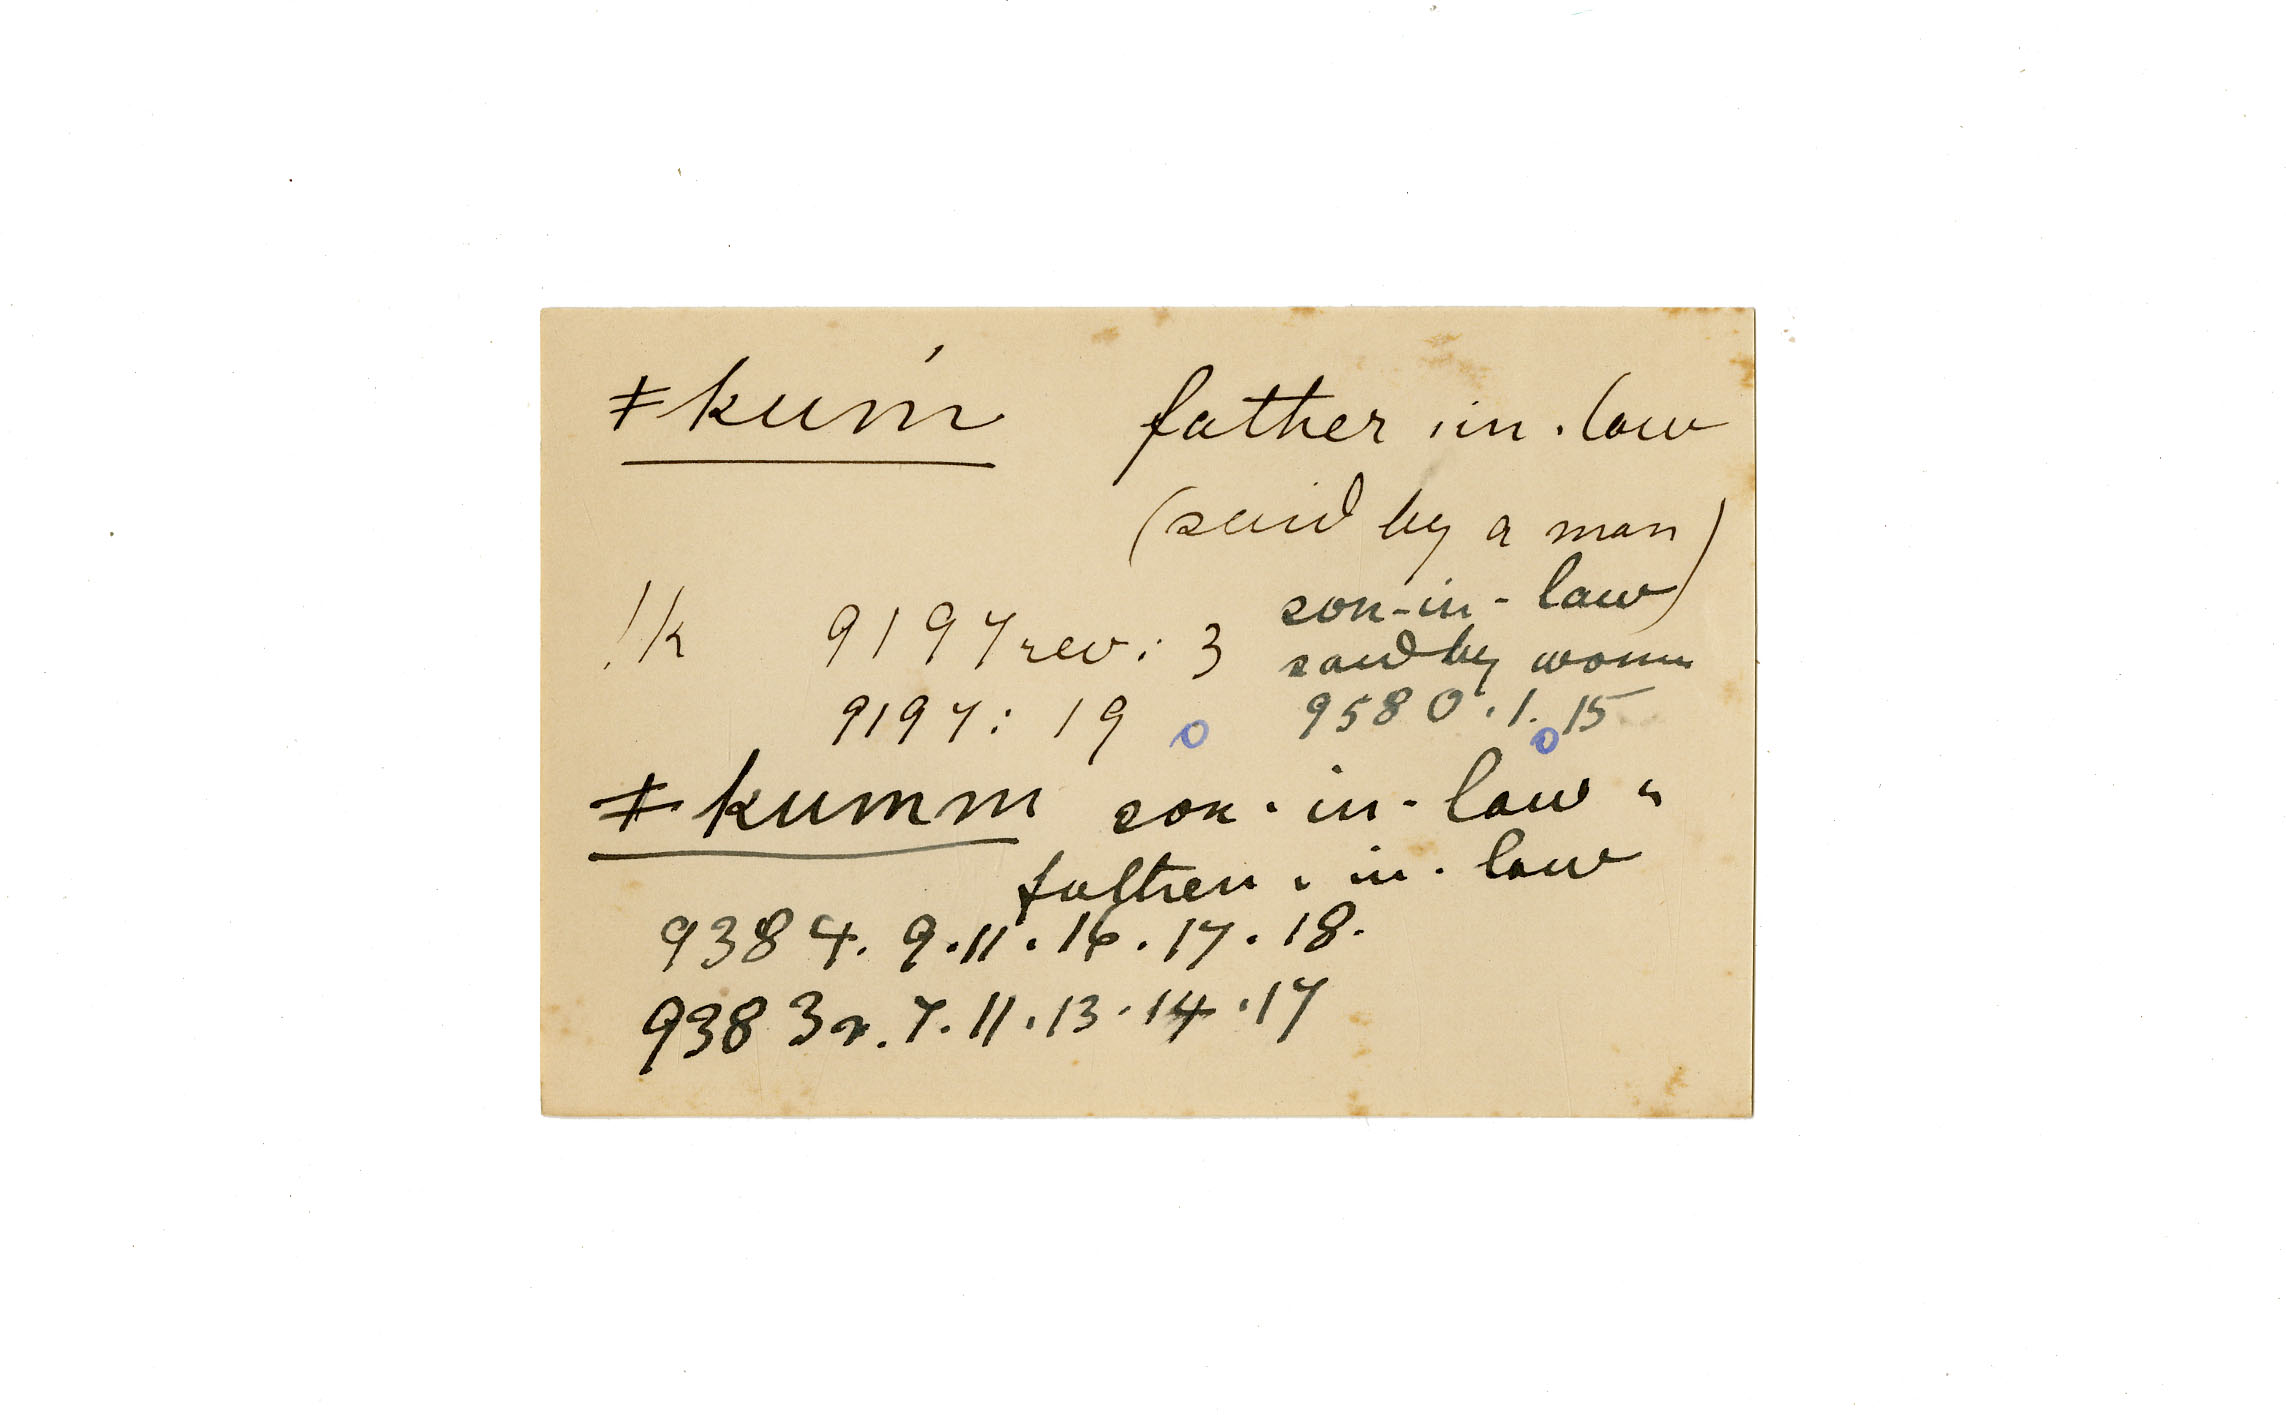 ǂkuḿ father-in-law
(said by a man)
son-in-law)
!k 9197 rev: 3 said by woman
9197: 19 o 9580.1.15
o
ǂkumm son-in-law "
father-in-law
9384. 9.11.16.17.18.
9383r. 7.11.13.14.17